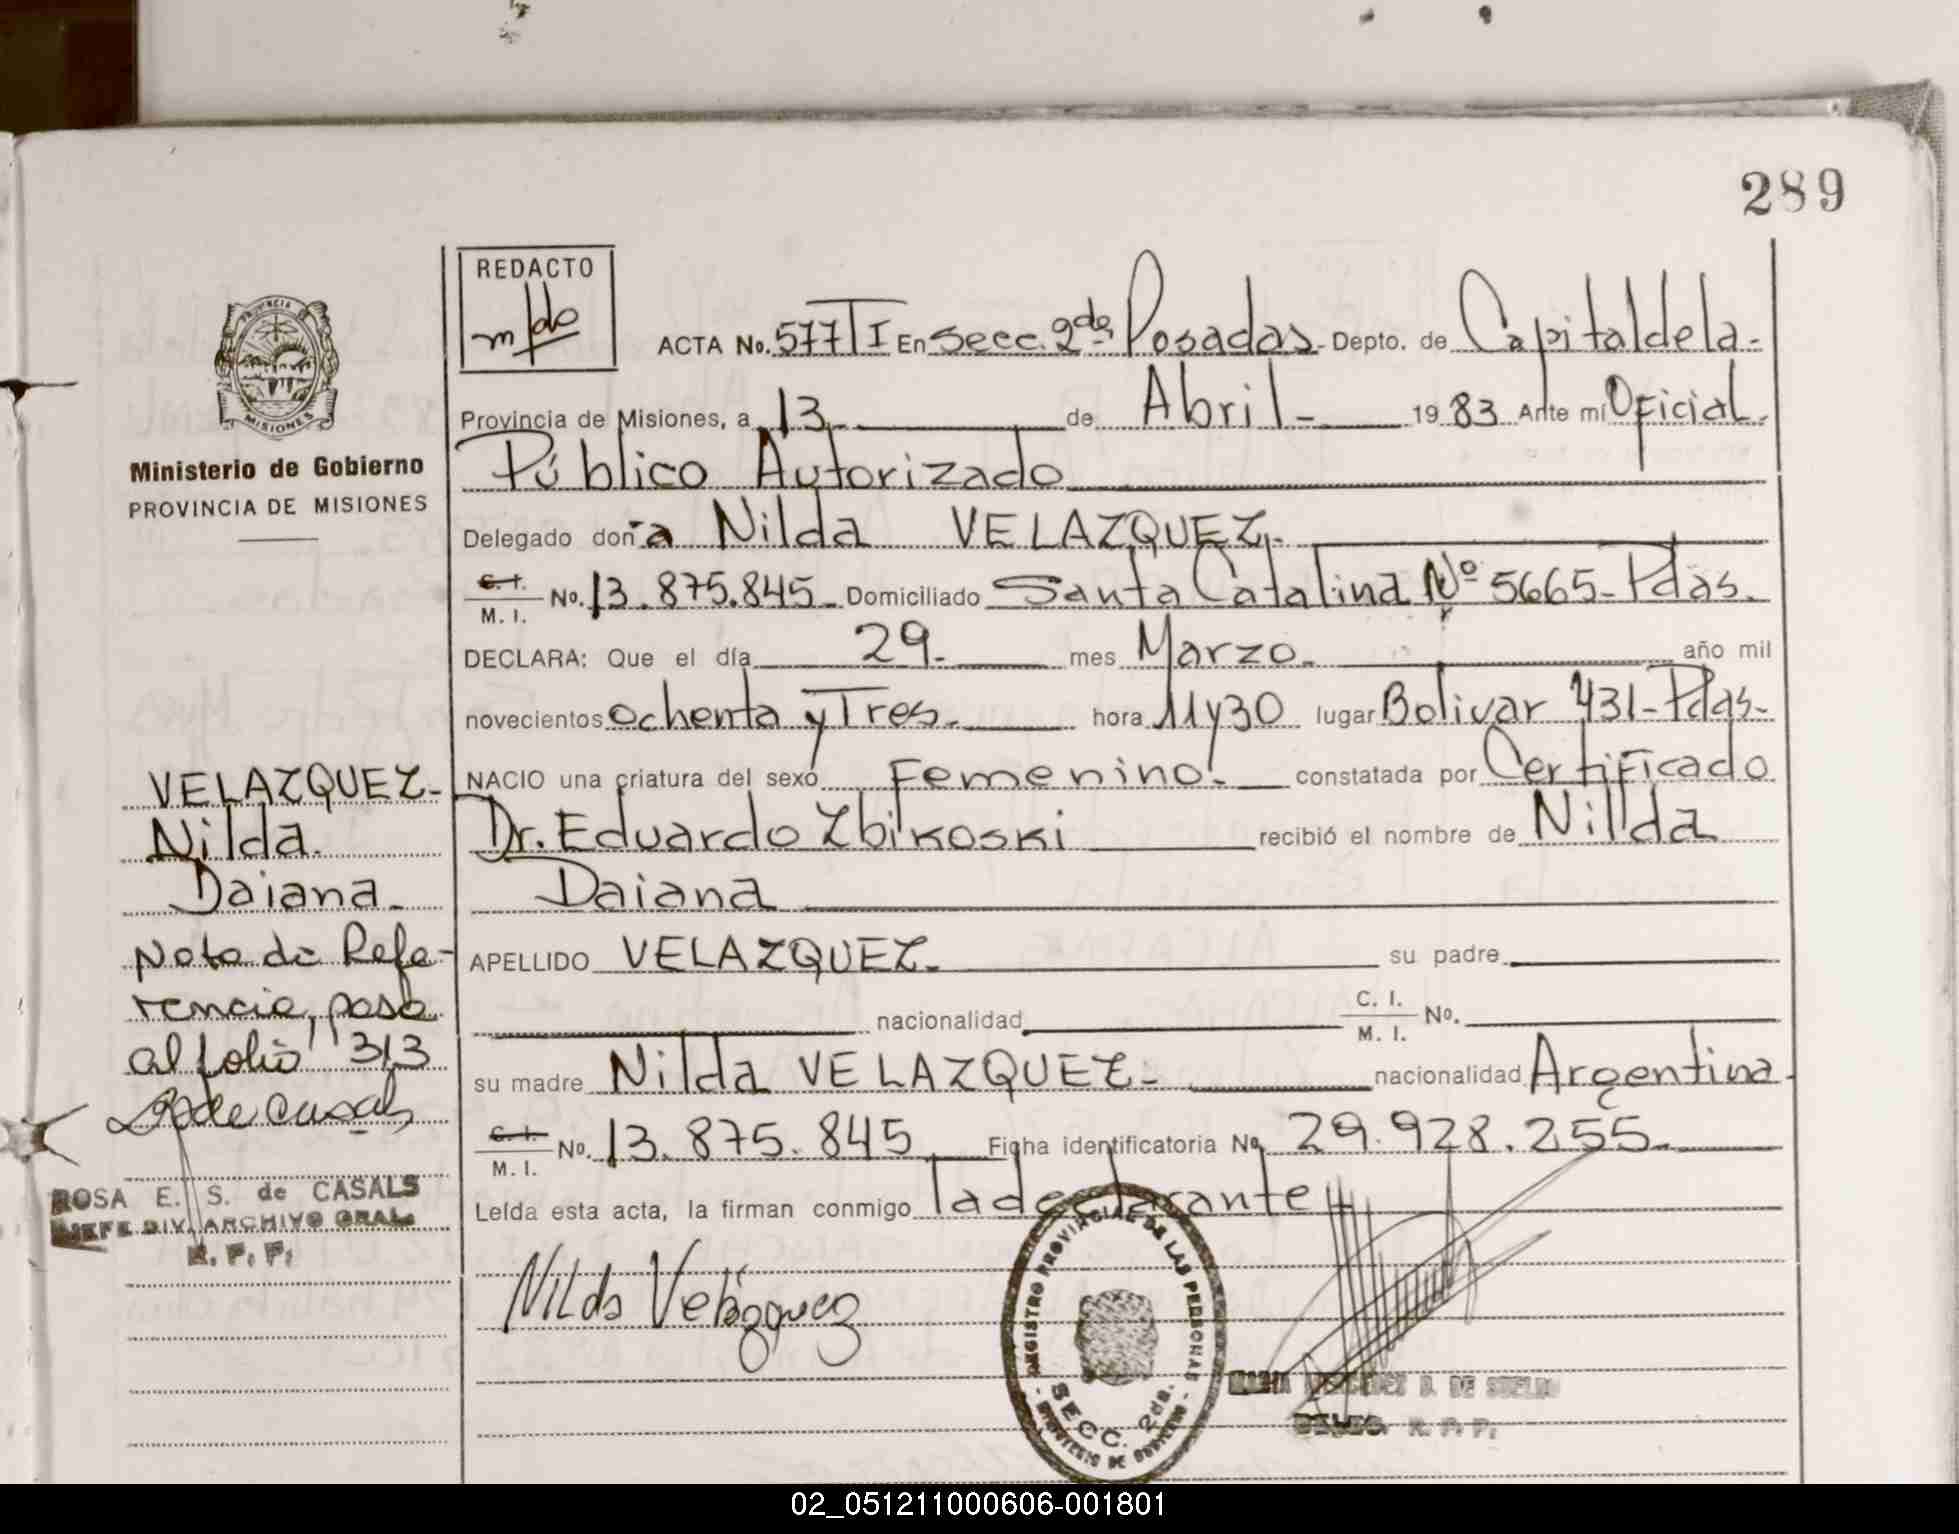 289
REDACTO
PROVINCIA
MISIONES
ACTA No. 577 TI En Secc. 2da Posadas- Depto. de Capital de la-
Provincia de Misiones, a 13- de Abril- 1983 Ante mí Oficial-
Público Autorizado
Ministerio de Gobierno
PROVINCIA DE MISIONES
Delegado doña Nilda VELAZQUEZ-
C. I. M. I. No. 13.875.845- Domiciliado Santa Catalina Nº 5665- Pdas.
DECLARA: Que el día 29- mes Marzo- año mil
novecientos ochenta y Tres- hora 11y30 lugar Bolivar 431- Pdas-
NACIO una criatura del sexo Femenino- constatada por Certificado
Dr. Eduardo Zbikoski recibió el nombre de Nilda
Daiana
APELLIDO VELAZQUEZ- su padre
nacionalidad C. I. M. I. No.
su madre Nilda VELAZQUEZ- nacionalidad Argentina-
C. I. M. I. No. 13.875.845 Ficha identificatoria No 29.928.255-
Leída esta acta, la firman conmigo la declarante
VELAZQUEZ-
Nilda
Daiana-
Nota de Refe-
rencia, pasa
al folio 313
ROSA E. S. de CASALS
JEFE DIV. ARCHIVO GRAL.
R. P. P.
Nilda Velázquez
REGISTRO PROVINCIAL DE LAS PERSONAS
SECC. 2da.
MINISTERIO DE GOBIERNO
DE SUELDO
DELEG. R. P. P.
02_051211000606-001801